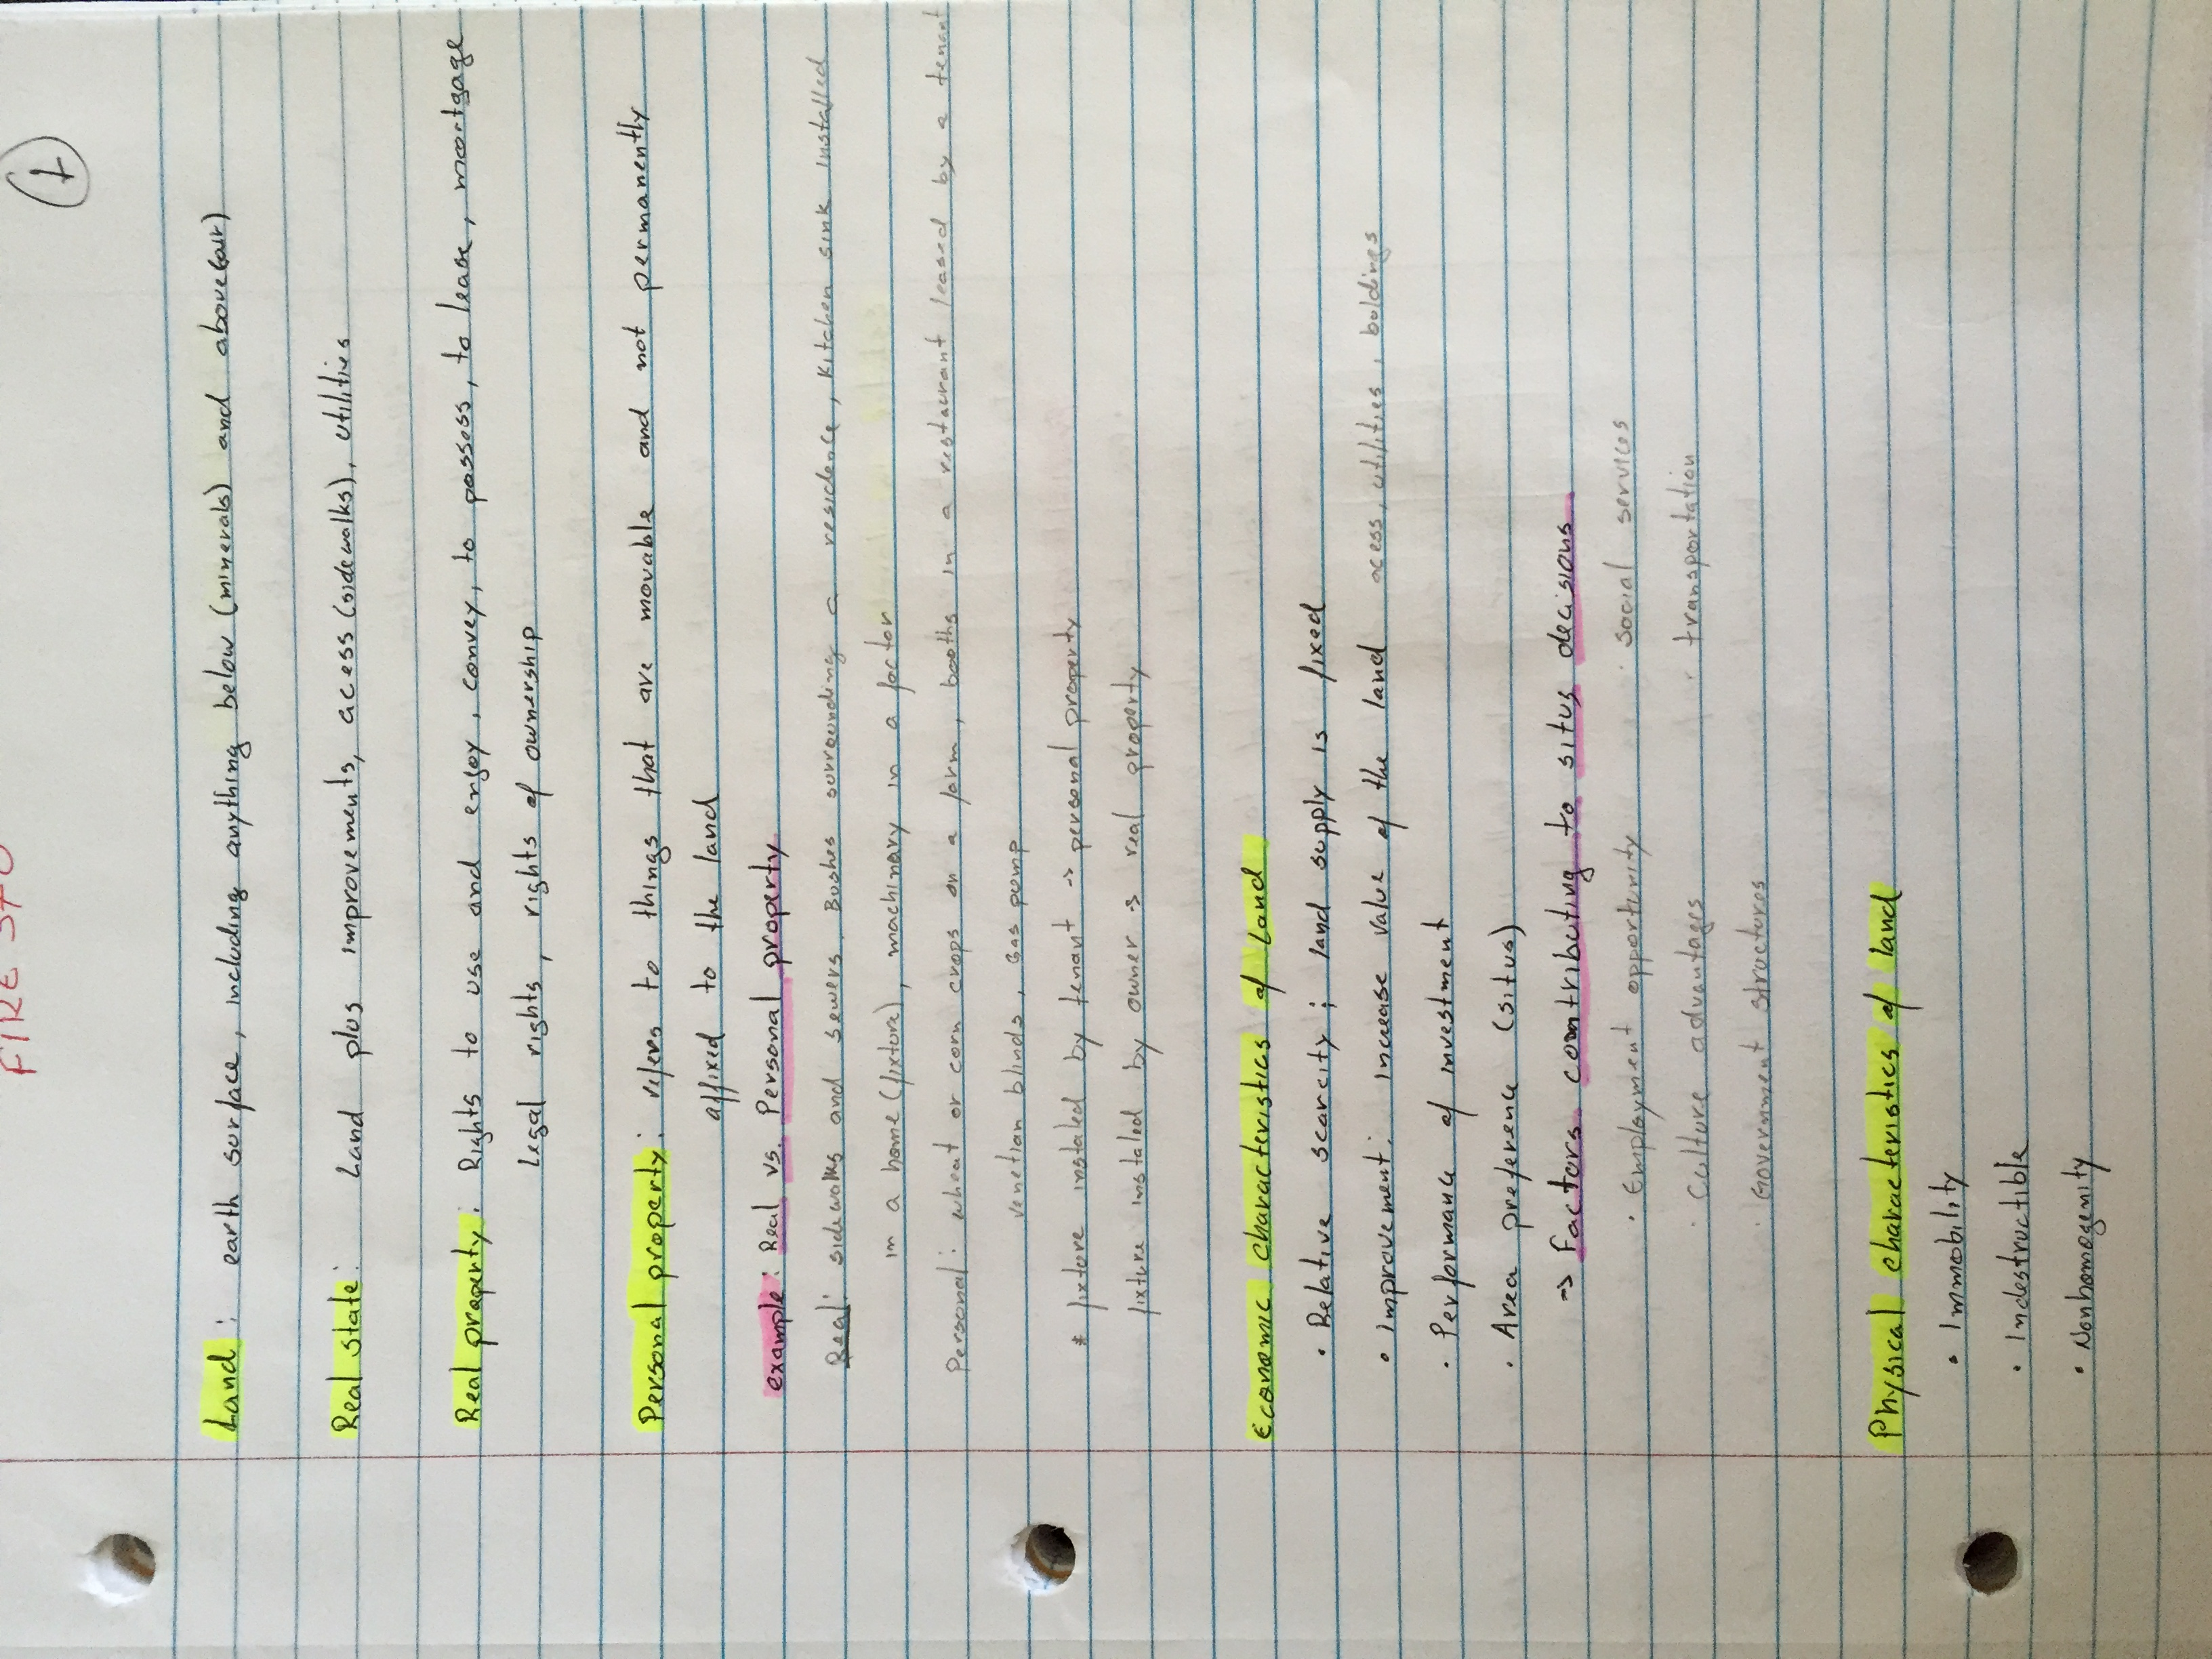 1
Land: earth surface, including anything below (minerals) and above (air)
Real state: Land plus improvements, access (sidewalks), utilities
Real property: Rights to use and enjoy, convey, to possess, to lease, mortgage
Legal rights, rights of ownership
Personal property: refers to things that are movable and not permanently
affixed to the land
example: Real vs. Personal property
Real: sidewalks and sewers, Bushes surrounding a residence, kitchen sink installed
in a home (fixture), machinary in a factor
Personal: wheat or corn crops on a farm, booths in a restaurant leased by a tenant
venetian blinds, gas pump
* fixture instaled by tenant -> personal property
fixture instaled by owner -> real property
Economic characteristics of Land
• Relative scarcity; land supply is fixed
• improvement: increase value of the land access, utilities, buldings
• Performanc of investment
• Area preference (situs)
-> Factors contributing to situs decisions
• Employment opportunity • social services
• Culture advantages • transportation
• Government structures
Physical characteristics of land
• Immobility
• Indestructible
• Nonhomogenity